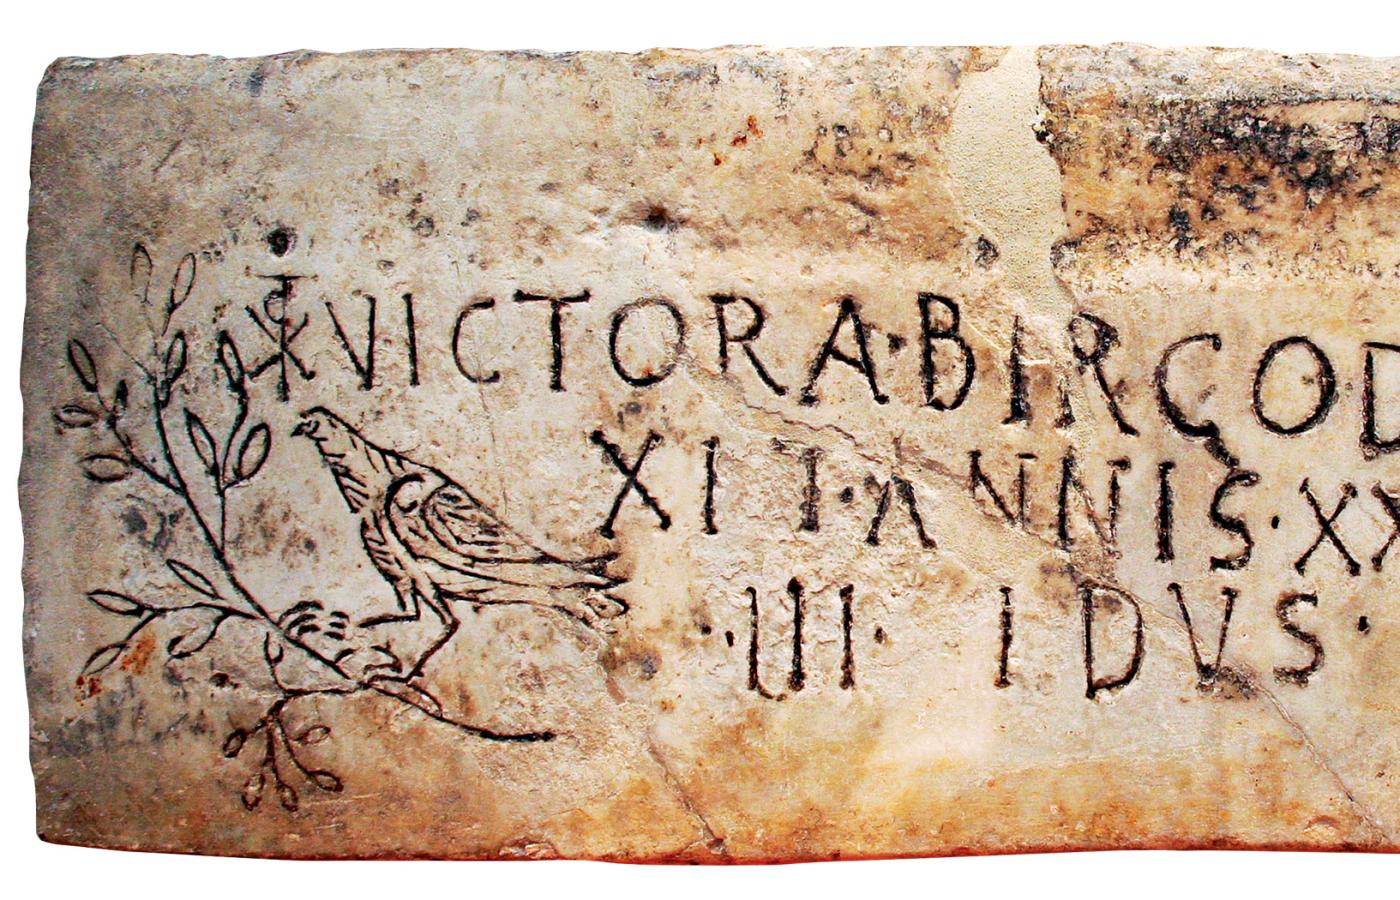 ⳩ VICTORA·BIRGOD
XIT·ANNIS·XX
·III· IDVS·